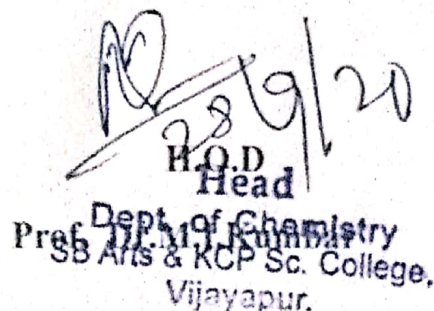 28/9/20
H.O.D
Head
Dept. of Chemistry
Prof. Dr. M.J.Kumbar
SB Arts & KCP Sc. College,
Vijayapur.